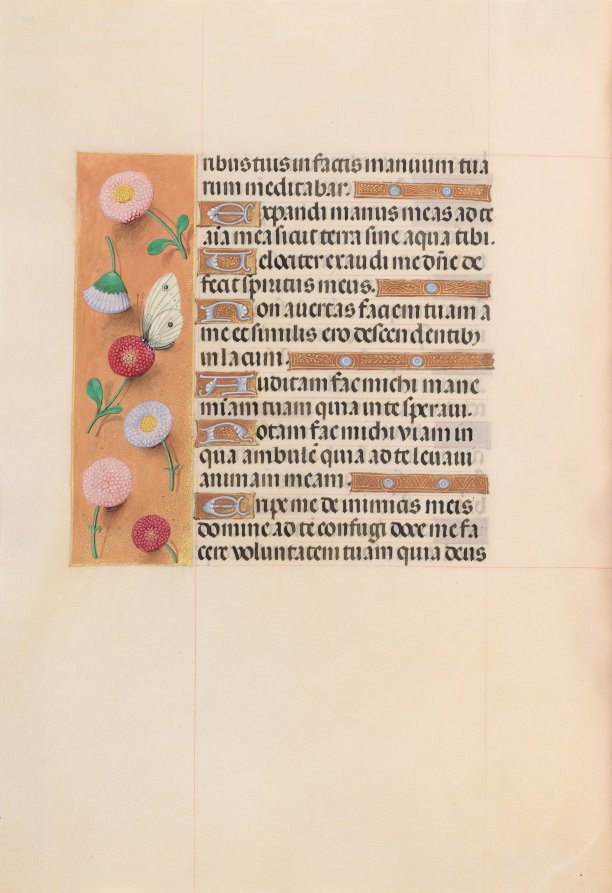 tibus tuis in factis manuum tua
rum meditabar.
Expandi manus meas ad te
aīa mea sicut terra sine aqua tibi.
Velociter exaudi me dn̄e de
fecit spiritus meus.
Non avertas faciem tuam a
me et similis ero descendentibꝫ
in lacum.
Auditam fac michi mane
mīam tuam quia in te speravi.
Notam fac michi viam in
qua ambulē quia ad te levavi
animam meam.
Eripe me de inimicis meis
domine ad te confugi doce me fa
cere voluntatem tuam quia deus